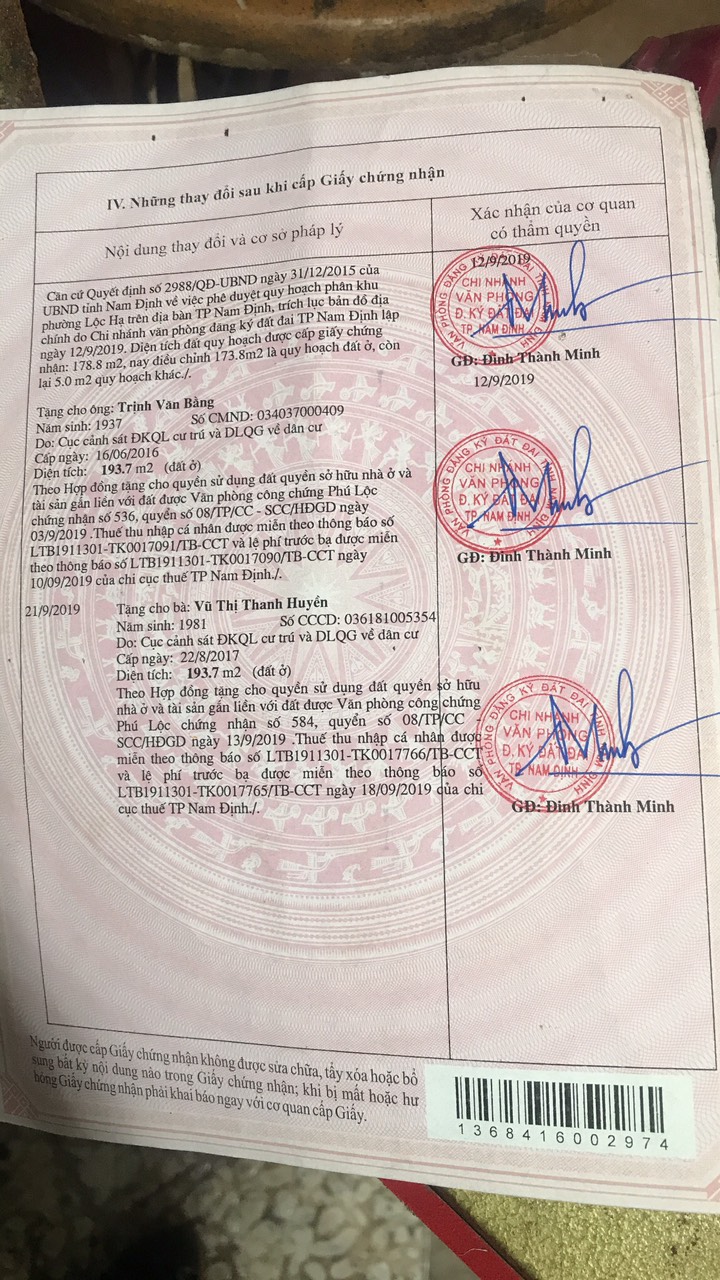 IV. Những thay đổi sau khi cấp Giấy chứng nhận
Nội dung thay đổi và cơ sở pháp lý
Xác nhận của cơ quan
có thẩm quyền
Căn cứ Quyết định số 2988/QĐ-UBND ngày 31/12/2015 của
UBND tỉnh Nam Định về việc phê duyệt quy hoạch phân khu
phường Lộc Hạ trên địa bàn TP Nam Định, trích lục bản đồ địa
chính do Chi nhánh văn phòng đăng ký đất đai TP Nam Định lập
ngày 12/9/2019. Diện tích đất quy hoạch được cấp giấy chứng
nhận: 178.8 m2, nay điều chỉnh 173.8m2 là quy hoạch đất ở, còn
lại 5.0 m2 quy hoạch khác./.
12/9/2019
VĂN PHÒNG ĐĂNG KÝ ĐẤT ĐAI TỈNH NAM ĐỊNH
CHI NHÁNH
VĂN PHÒNG
Đ. KÝ ĐẤT ĐAI
TP. NAM ĐỊNH
GĐ: Đinh Thành Minh
12/9/2019
Tặng cho ông: Trịnh Văn Bằng
Năm sinh: 1937 Số CMND: 034037000409
Do: Cục cảnh sát ĐKQL cư trú và DLQG về dân cư
Cấp ngày: 16/06/2016
Diện tích: 193.7 m2 (đất ở)
Theo Hợp đồng tặng cho quyền sử dụng đất quyền sở hữu nhà ở và
tài sản gắn liền với đất được Văn phòng công chứng Phú Lộc
chứng nhận số 536, quyển số 08/TP/CC - SCC/HĐGD ngày
03/9/2019 .Thuế thu nhập cá nhân được miễn theo thông báo số
LTB1911301-TK0017091/TB-CCT và lệ phí trước bạ được miễn
theo thông báo số LTB1911301-TK0017090/TB-CCT ngày
10/09/2019 của chi cục thuế TP Nam Định./.
VĂN PHÒNG ĐĂNG KÝ ĐẤT ĐAI TỈNH NAM ĐỊNH
CHI NHÁNH
VĂN PHÒNG
Đ. KÝ ĐẤT ĐAI
TP. NAM ĐỊNH
GĐ: Đinh Thành Minh
21/9/2019 Tặng cho bà: Vũ Thị Thanh Huyền
Năm sinh: 1981 Số CCCD: 036181005354
Do: Cục cảnh sát ĐKQL cư trú và DLQG về dân cư
Cấp ngày: 22/8/2017
Diện tích: 193.7 m2 (đất ở)
Theo Hợp đồng tặng cho quyền sử dụng đất quyền sở hữu
nhà ở và tài sản gắn liền với đất được Văn phòng công chứng
Phú Lộc chứng nhận số 584, quyển số 08/TP/CC -
SCC/HĐGD ngày 13/9/2019 .Thuế thu nhập cá nhân được
miễn theo thông báo số LTB1911301-TK0017766/TB-CCT
và lệ phí trước bạ được miễn theo thông báo số
LTB1911301-TK0017765/TB-CCT ngày 18/09/2019 của chi
cục thuế TP Nam Định./.
VĂN PHÒNG ĐĂNG KÝ ĐẤT ĐAI TỈNH NAM ĐỊNH
CHI NHÁNH
VĂN PHÒNG
Đ. KÝ ĐẤT ĐAI
TP. NAM ĐỊNH
GĐ: Đinh Thành Minh
Người được cấp Giấy chứng nhận không được sửa chữa, tẩy xóa hoặc bổ
sung bất kỳ nội dung nào trong Giấy chứng nhận; khi bị mất hoặc hư
hỏng Giấy chứng nhận phải khai báo ngay với cơ quan cấp Giấy.
1368416002974